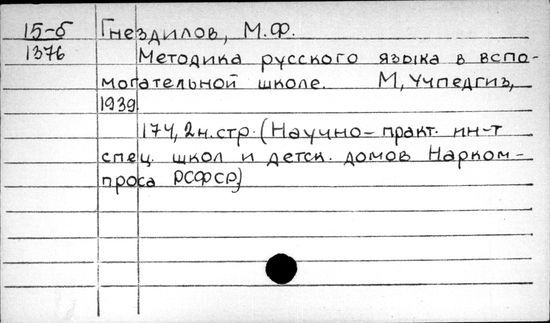 15-б Гнездилов, М.Ф.
1376 Методика русского языка в вспо-
могательной школе. М, Учпедгиз,
1939
174, 2 н. стр. (Научно-практ. ин-т
спец. школ и детск. домов Нарком-
проса РСФСР)